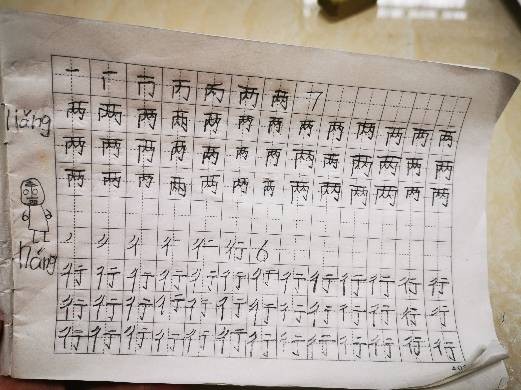 liǎng
一 丆 丙 丙 两 两 7
两 两 两 两 两 两 两 两 两 两 两 两 两
两 两 两 两 两 两 两 两 两 两 两 两 两
两 两 两 两 两 两 两 两 两 两 两 两 两
háng
丿 彳 行 6
行 行 行 行 行 行 行 行 行 行 行 行 行
行 行 行 行 行 行 行 行 行 行 行 行 行
行 行 行 行 行 行 行 行 行 行 行 行 行